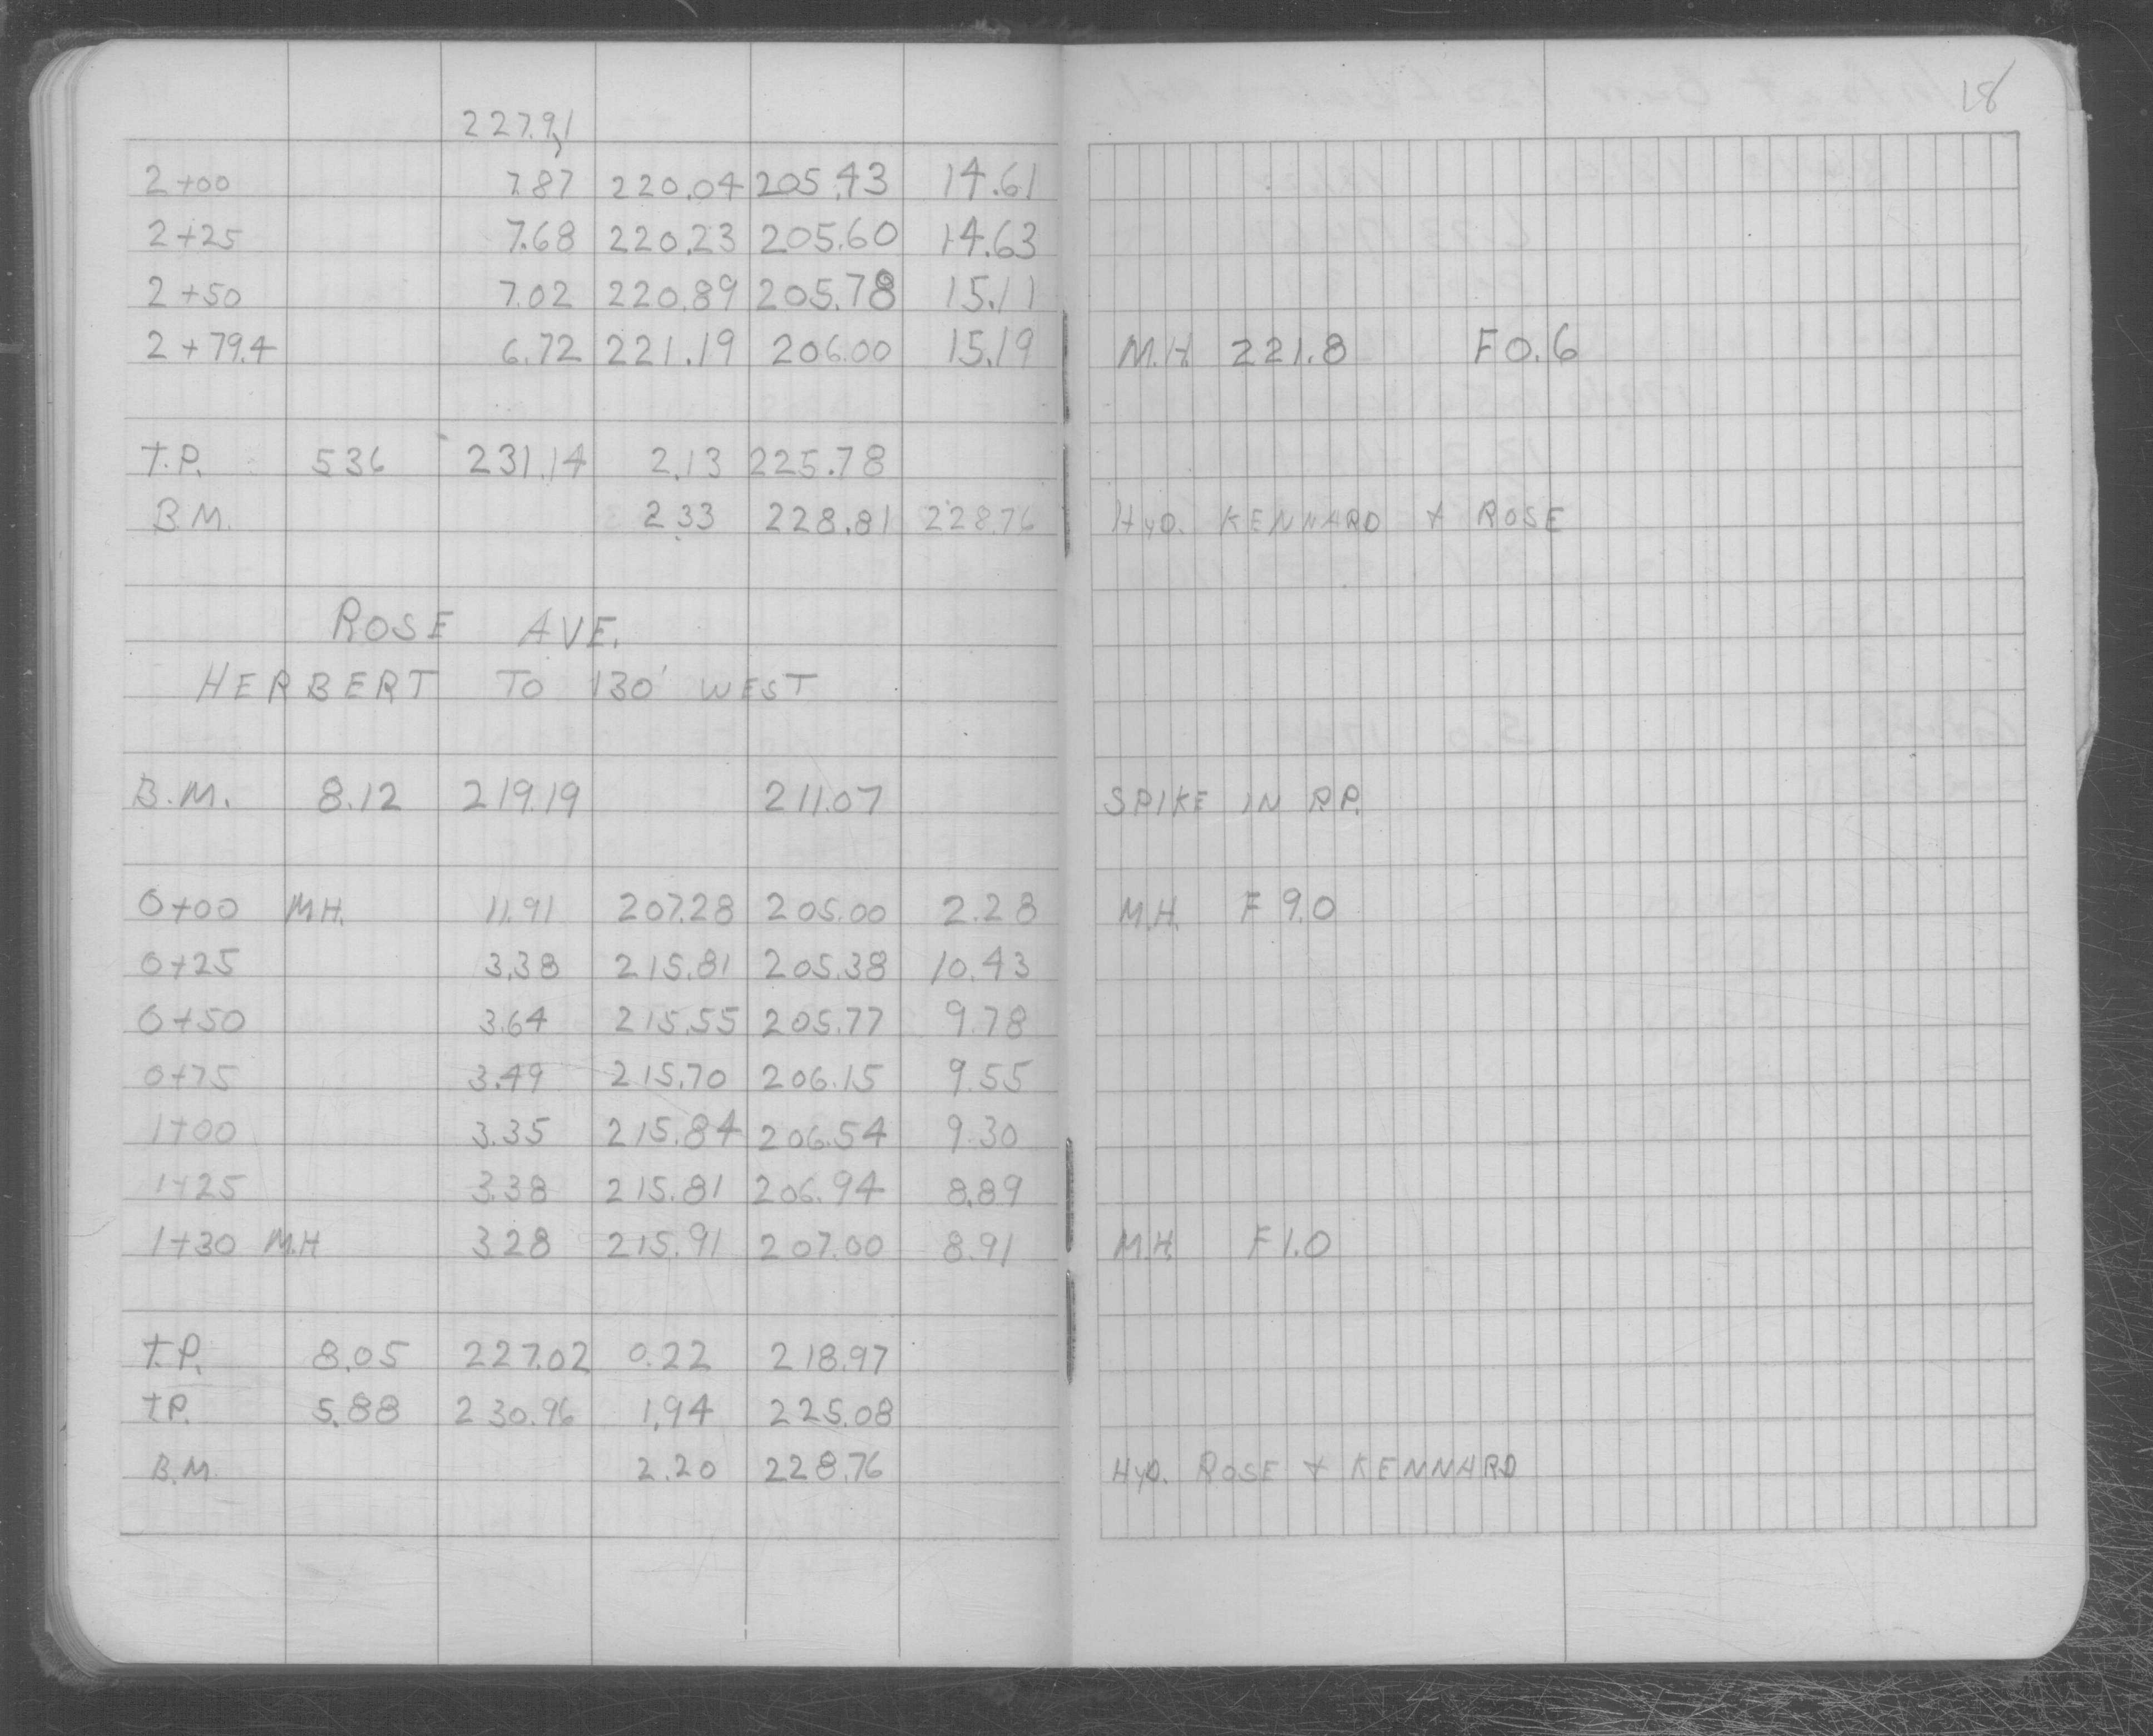 18
227.91
2+00 7.87 220.04 205.43 14.61
2+25 7.68 220.23 205.60 14.63
2+50 7.02 220.89 205.78 15.11
2+79.4 6.72 221.19 206.00 15.19 M.H. 221.8 F 0.6
T.P. 536 231.14 2.13 225.78
B.M. 2.33 228.81 228.76 HYD. KENNARD + ROSE
ROSE AVE.
HERBERT TO 130' WEST
B.M. 8.12 219.19 211.07 SPIKE IN P.P.
0+00 M.H. 11.91 207.28 205.00 2.28 M.H. F 9.0
0+25 3.38 215.81 205.38 10.43
0+50 3.64 215.55 205.77 9.78
0+75 3.49 215.70 206.15 9.55
1+00 3.35 215.84 206.54 9.30
1+25 3.38 215.81 206.94 8.89
1+30 M.H 3.28 215.91 207.00 8.91 M.H. F 1.0
T.P. 8.05 227.02 0.22 218.97
T.P. 5.88 230.96 1.94 225.08
B.M. 2.20 228.76 HYD. ROSE + KENNARD